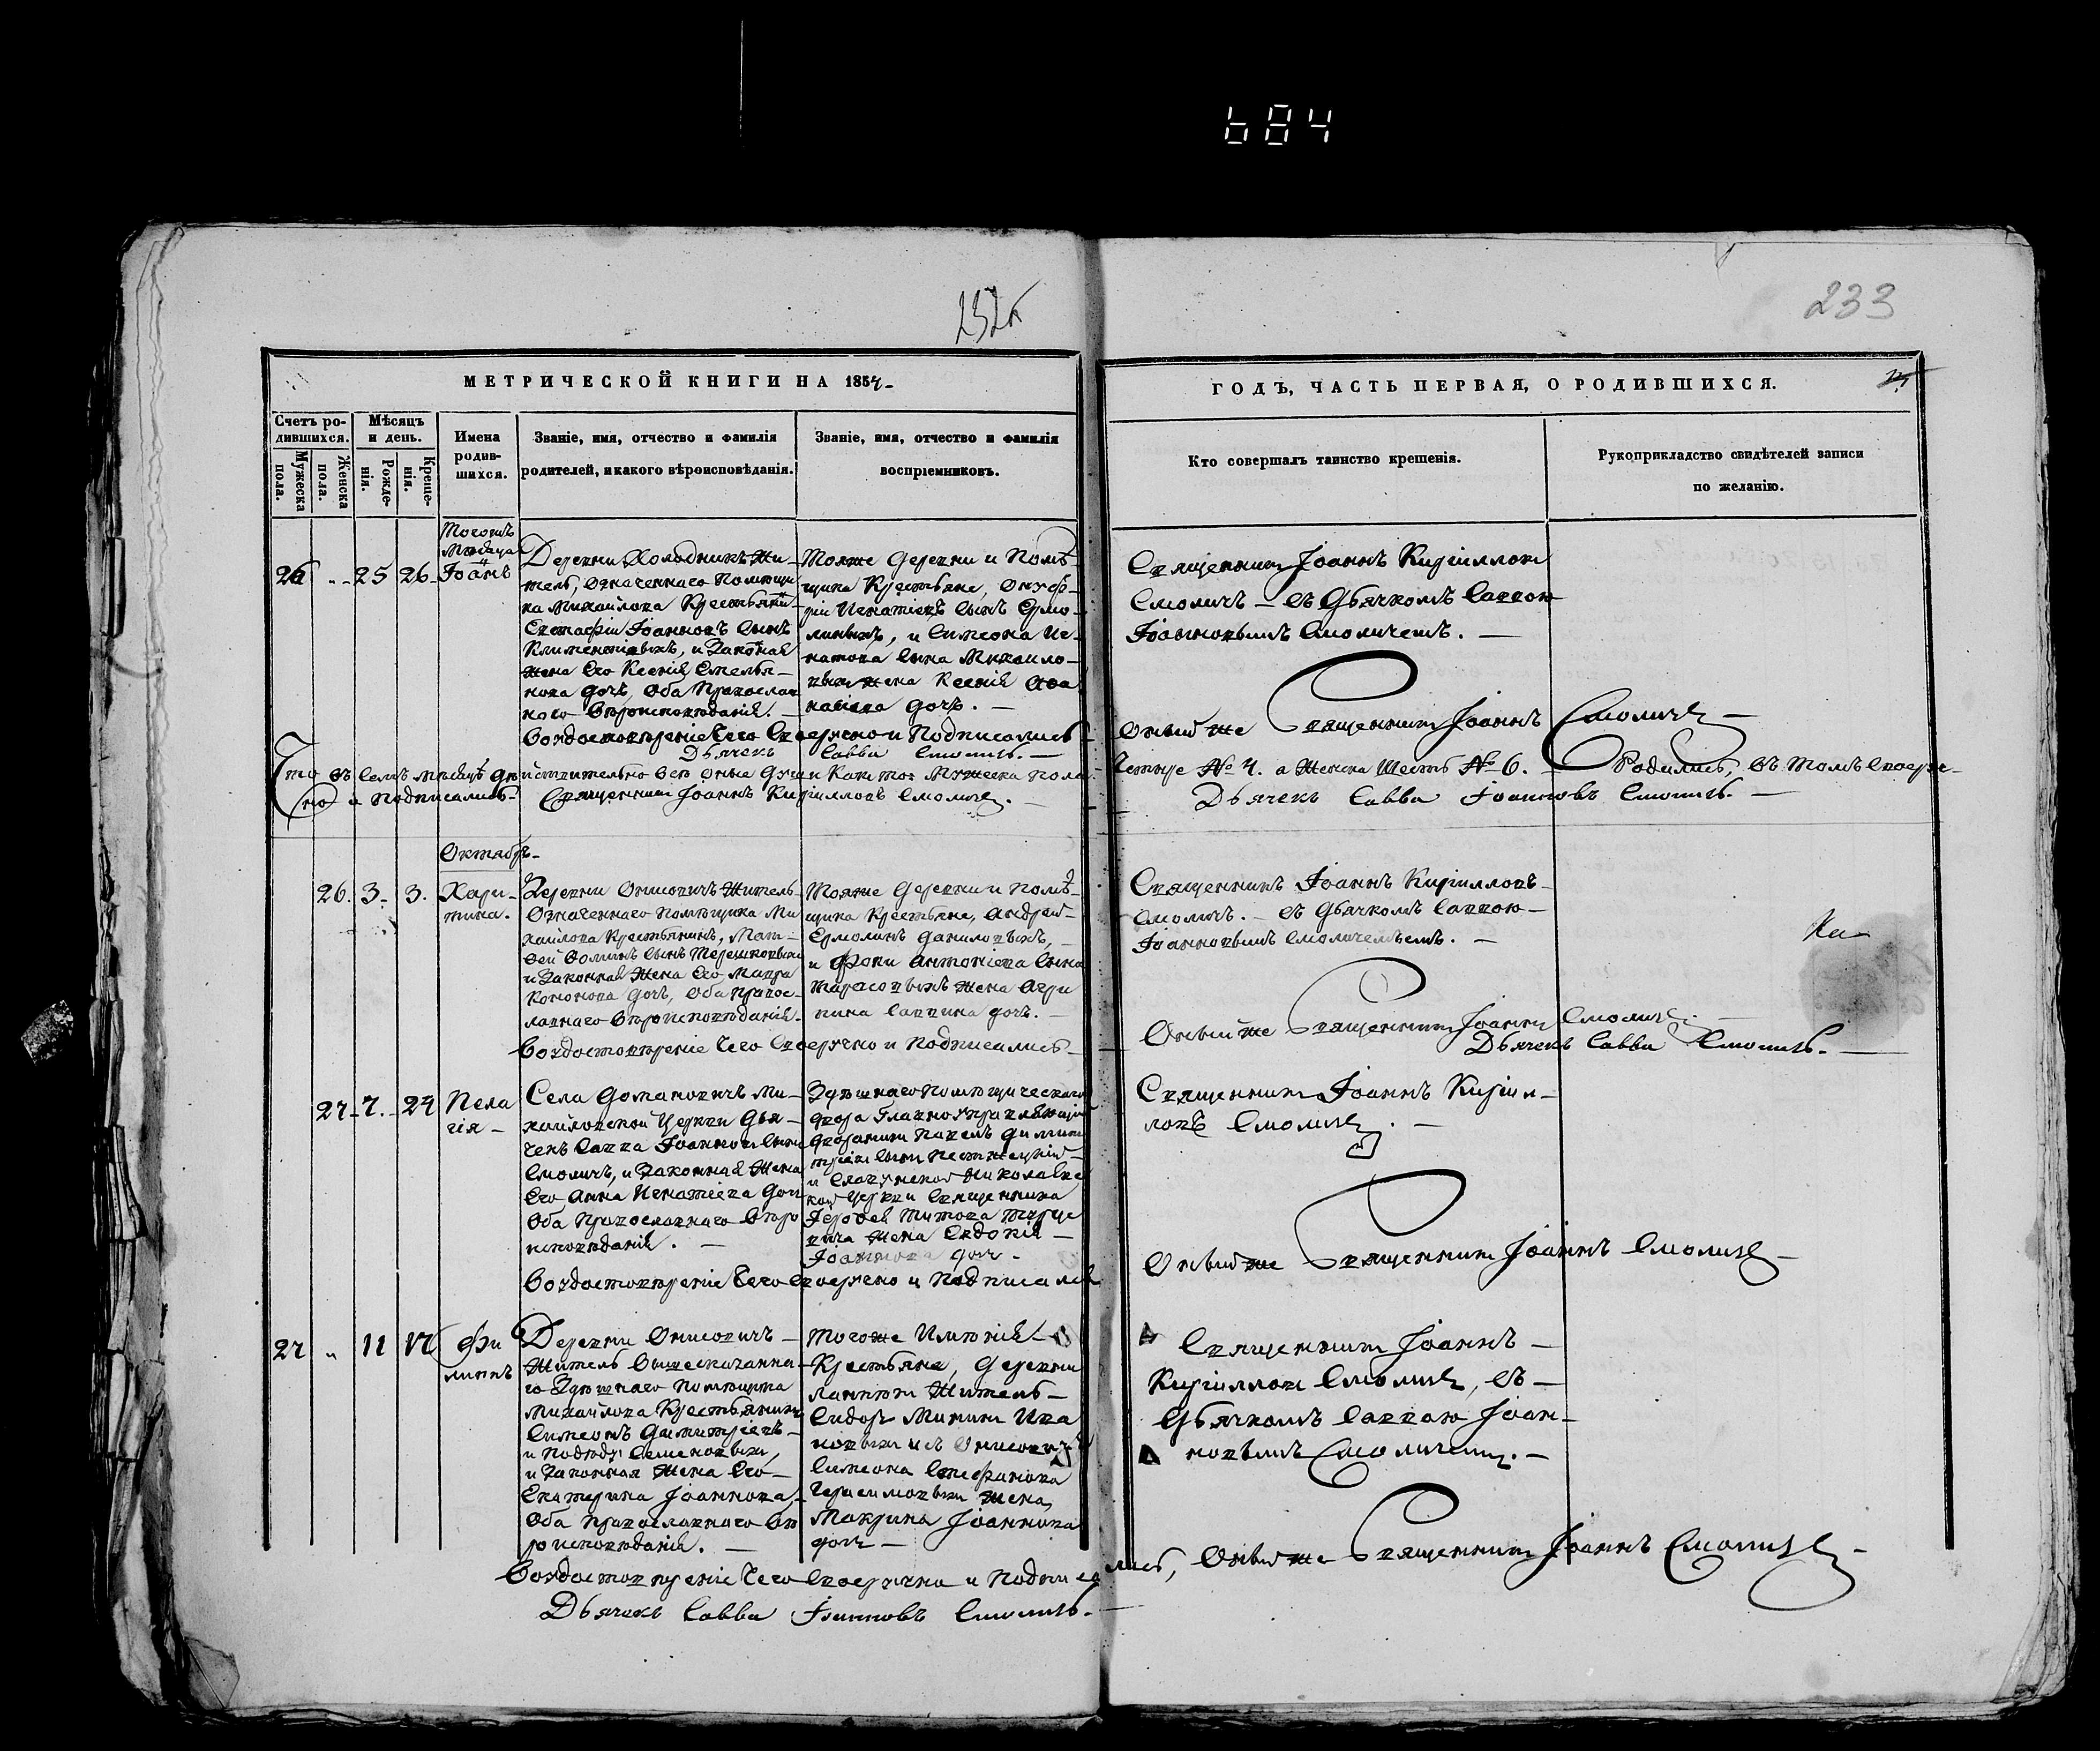 684
232б
233
МЕТРИЧЕСКОЙ КНИГИ НА 1854
ГОДЪ, ЧАСТЬ ПЕРВАЯ, О РОДИВШИХСЯ.
Счетъ ро-
дившихся.
Мужеска
пола.
Женска
пола.
Мѣсяцъ
и день.
Рожде-
нія.
Креще-
нія.
Имена
родив-
шихся.
Званіе, имя, отчество и фамилія
родителей, и какого вѣроисповѣданія.
Званіе, имя, отчество и фамилія
воспріемниковъ.
Кто совершалъ таинство крещенія.
Рукоприкладство свидѣтелей записи
по желанію.
26 „ 25 26
Тогожъ
Мѣсяца
Іоаннъ
Деревни Холодникъ Жи-
тель, Означеннаго Помѣщи
ка Михайлова Крестьянин
Евстафій Іоанновъ Сынъ
Климентіевыхъ, и Законная
Жена Его Ксенія Емелья-
нова дочь, Оба Православ
наго Вѣроисповѣданія.
Тояже деревни и Помѣ-
щика Крестьяне, Онуф-
рій Игнатіевъ Сынъ Ермо-
линыхъ, и Симеона Иг-
натова Сына Михайло-
выхъ Жена Ксенія
дочь.
Священникъ Іоаннъ Кирилловъ
Смоличъ – Съ Дьячкомъ Саввою
Іоанновымъ Смоличемъ.
Воудостовѣреніе Чего Своеручно и Подписались
Оный же Священникъ Іоаннъ Смоличъ
Дьячекъ Савва Смоличъ.
Что въ Семъ мѣсяцѣ дѣйствительно Всѣ Оные души Какъ то: Мужеска пола Четыре № 4. а Женска Шесть № 6. Родились, Въ томъ Своеру-
чно и подписались Священникъ Іоаннъ Кирилловъ Смоличъ. Дьячекъ Савва Іоанновъ Смоличъ.
Октябрь
26. 3. 3.
Хари-
тина.
Деревни Онисовичъ Житель
Означеннаго Помѣщика Ми
хайлова Крестьянинъ, Мат-
фей Сынъ Терешковыхъ
и Законная Жена Его Мавра
Кононова дочь, Оба Правос-
лавнаго Вѣроисповѣданія.
Тояже деревни и Помѣ-
щика Крестьяне, Андрей
Ермолинъ Даниловыхъ,
и Фоки Антоніева Сына
Тарасовыхъ Жена Агри
пина Саввина дочь.
Священникъ Іоаннъ Кирилловъ
Смоличъ. – Съ Дьячкомъ Саввою
Іоанновымъ
Воудостовѣреніе Чего Своеручно и Подписались
Оный же Священникъ Іоаннъ Смоличъ.
Дьячекъ Савва Смоличъ.
27. 7. 24
Пела
гія
Села Домановичъ Ми-
хайловской Церкви Дья-
чекъ Савва Іоанновъ Сынъ
Смоличъ, и Законная Жена
Его Анна Игнатіева дочь
Оба Православнаго Вѣро
исповѣданія.
Здѣшняго Помѣщическаго
двора Главноуправляющій
дворянинъ Павелъ Дими-
тріевъ Сынъ
и Николаевс
кой Церкви Священника
Титова
Жена Евдокія
Іоаннова дочь
Священникъ Іоаннъ Кирил-
ловъ Смоличъ.
Воудостовѣреніе Чего Своеручно и Подписался
Оный же Священникъ Іоаннъ Смоличъ
27 „ 11 17
Фи
липпъ
Деревни Онисовичъ
Житель Вышесказанна-
го Здѣшняго Помѣщика
Михайлова Крестьянинъ
Симеонъ Димитріевъ
Семеновыхъ,
и Законная Жена Его
Екатерина Іоаннова,
Оба Православнаго Вѣ
роисповѣданія.
Тогоже Имѣнія
Крестьяне, деревни
Житель
Сидоръ Мининъ Ива
новыхъ и съ Онисовичъ
Симеона Стефанова
Герасимовыхъ Жена,
Макрина Іоаннова
дочь
Священникъ Іоаннъ
Кирилловъ Смоличъ, Съ
Дьячкомъ Саввою Іоан-
новымъ Смоличемъ.
Воудостовѣреніе Чего Своеручно и Подписались, Оный же Священникъ Іоаннъ Смоличъ
Дьячекъ Савва Іоанновъ Смоличъ.